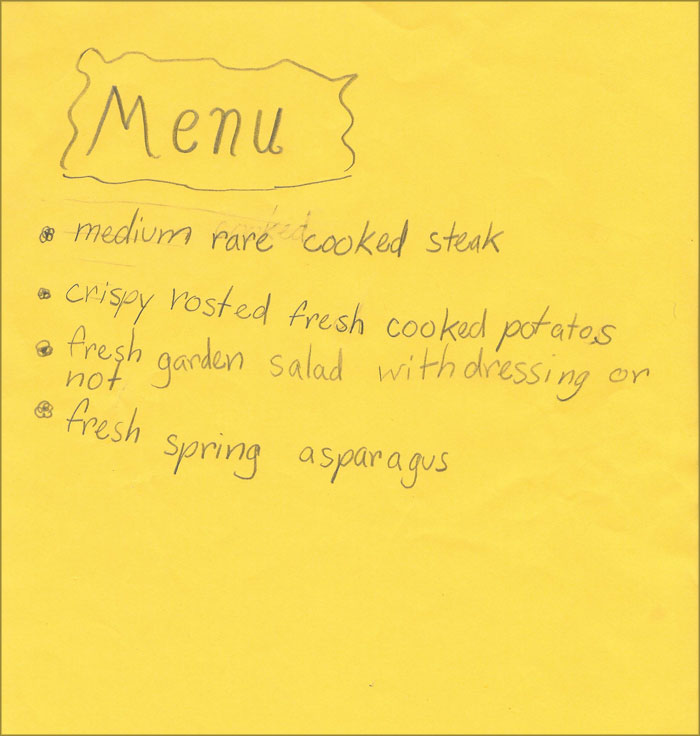 Menu
medium rare cooked steak
crispy rosted fresh cooked potatos
fresh garden salad with dressing or
not
fresh spring asparagus